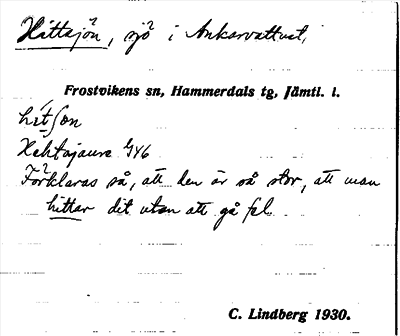 Hittsjön, sjö i Ankarvattnet,
Frostvikens sn, Hammerdals tg, Jämtl. l.
hìtʃön
Hehtajaure G46
Förklaras så, att den är så stor, att man
hittar dit utan att gå fel.
C. Lindberg 1930.